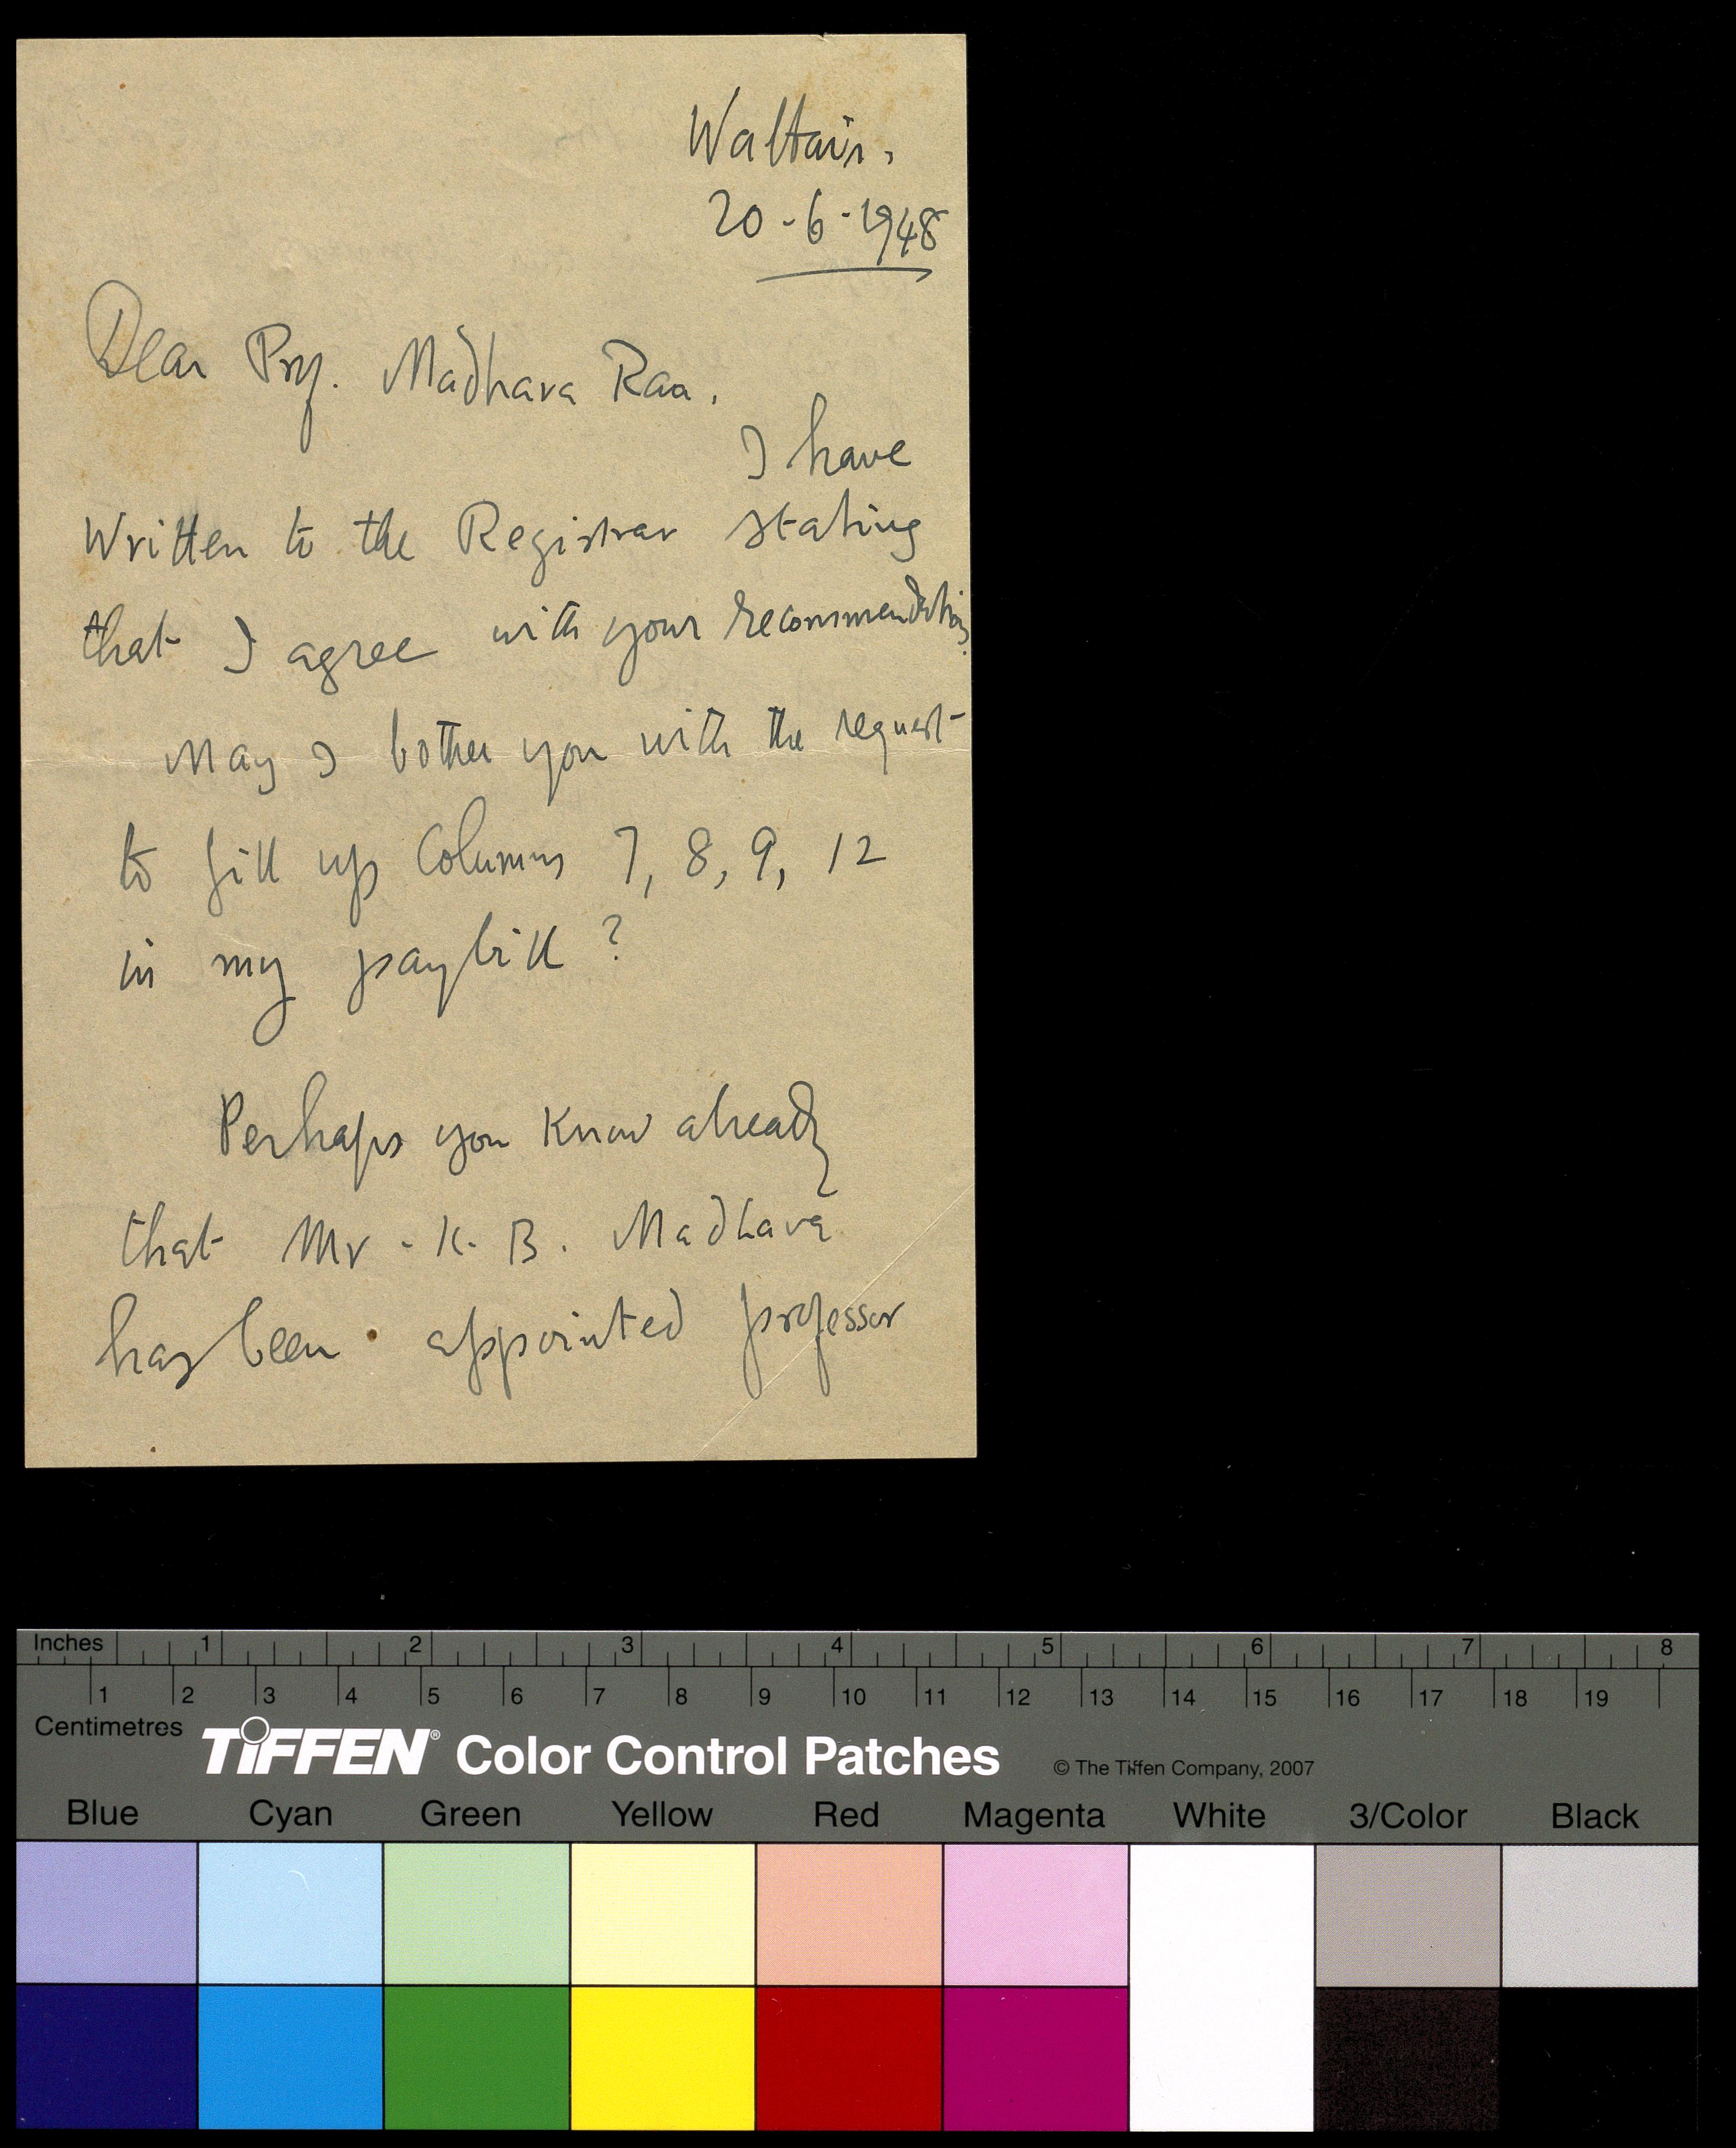 Waltair.
20-6-1948
Dear Prof. Madhava Rao,
I have
Written to the Registrar stating
that I agree with your recommendations.
May I bother you with the request
to fill up Columns 7, 8, 9, 12
in my paybill ?
Perhaps you know already
that Mr. K. B. Madhava
has been appointed professor
Inches 1 2 3 4 5 6 7 8
1 2 3 4 5 6 7 8 9 10 11 12 13 14 15 16 17 18 19
Centimetres
TIFFEN® Color Control Patches © The Tiffen Company, 2007
Blue Cyan Green Yellow Red Magenta White 3/Color Black